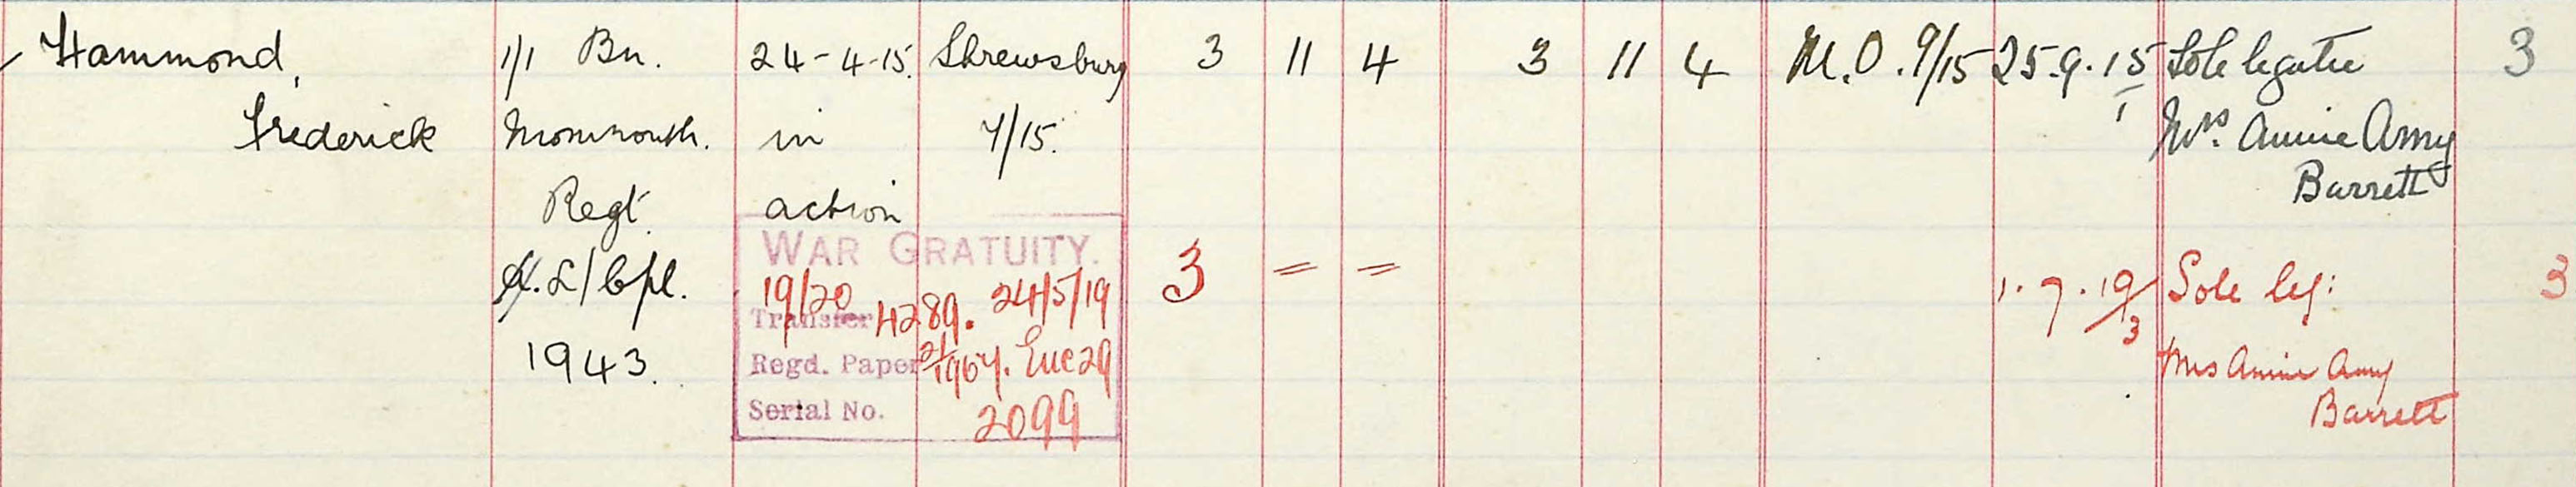 Hammond, 1/1 Bn. 24-4-15. Shrewsbury 3 11 4 3 11 4 M.O. 9/15 25.9.15 Sole legatee 3
Frederick Monmouth. in 7/15. 1 Mrs. Annie Amy
Regt. action Barrett
WAR GRATUITY.
A. L/Cpl. 19/20 24/5/19 3 = = 1.7.19 Sole leg: 3
Transfer 4289. 3
1943. Regd. Paper Enc 29 Mrs Annie Amy
Serial No. 2099 Barrett